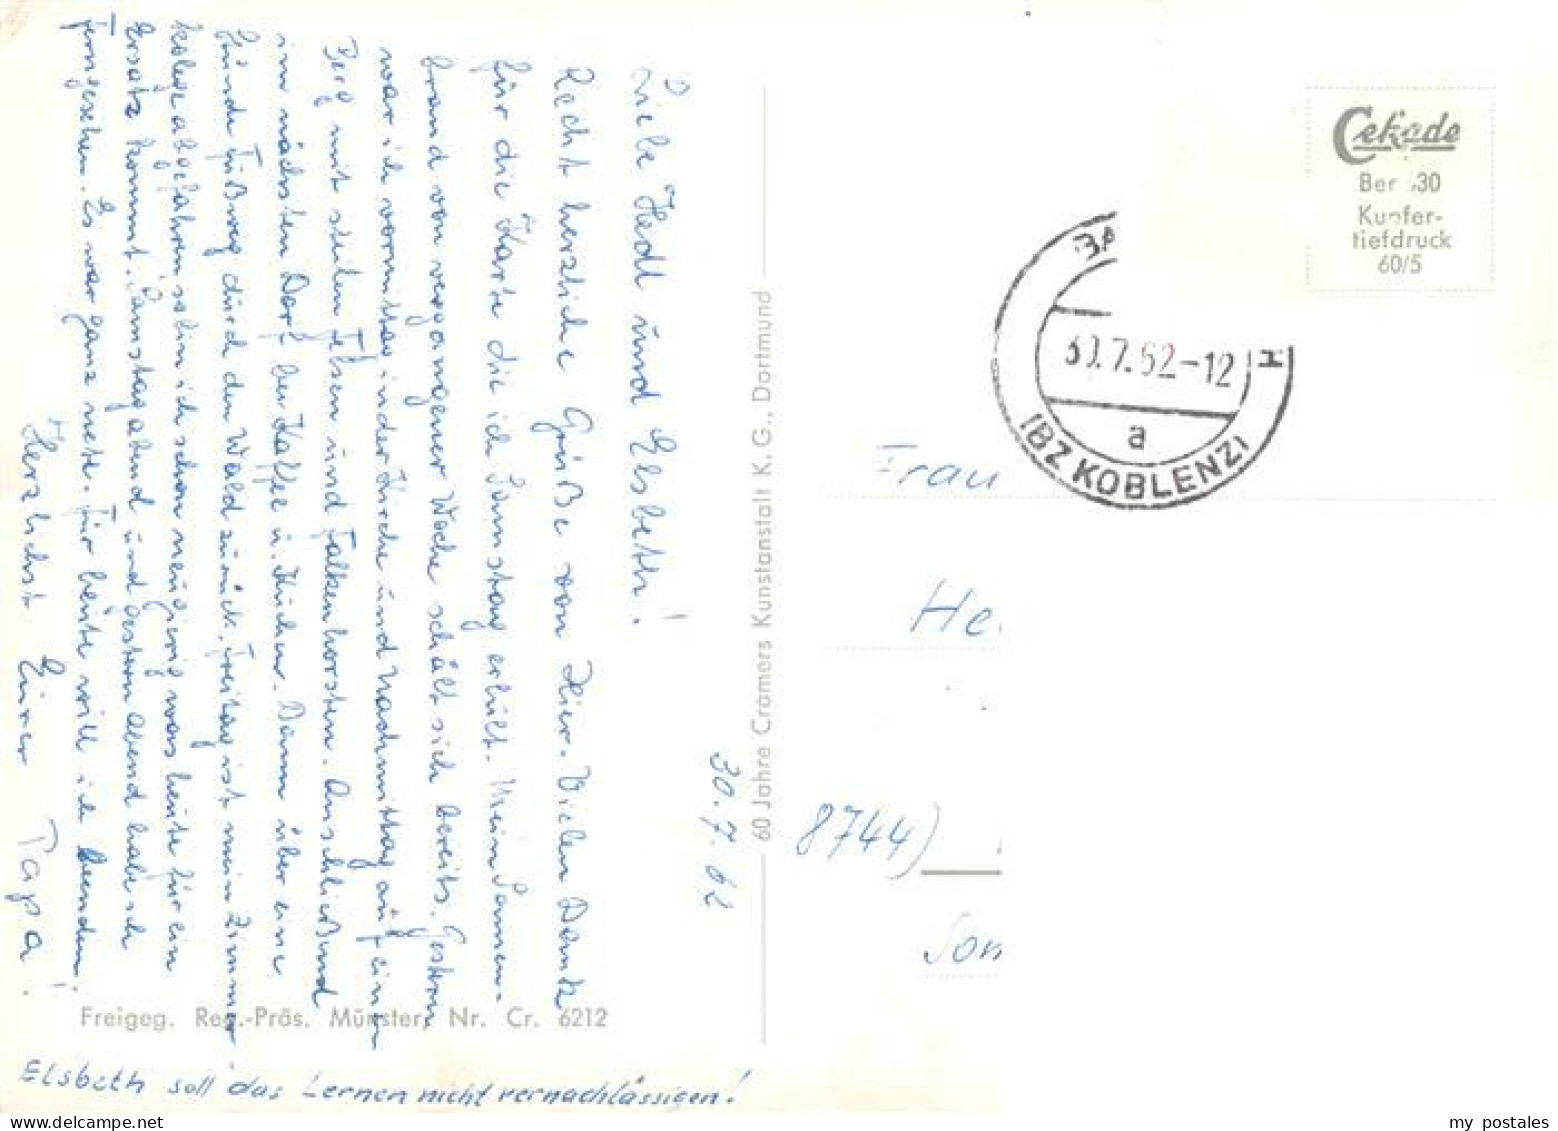 30.7.62
Liebe Hedl und Elsbeth!
Recht herzliche Grüße von Hier. Vielen Dank
für die Karte die ich Samstag erhielt. Mein Sonnen-
brand von vergangener Woche schält sich bereits. Gestern
war ich vormittag in der Kirche und Nachmittag auf einen
Berg mit steilen Felsen und Falkenhorsten. Anschließend
im nächsten Dorf bei Kaffee u. Kuchen. Dann über eine
Stunde Fußweg durch den Wald zurück. Freitag ist mein Zimmer-
kolege abgefahren, bin ich schon neugierig was heute für ein
Ersatz kommt. Samstagabend und gestern abend habe ich
ferngesehen. Es war ganz nett. Für heute will ich beenden!
Herzlichst Euer Papa!
Elsbeth soll das Lernen nicht vernachlässigen!
Freigeg. Reg.-Präs. Münster, Nr. Cr. 6212
60 Jahre Cramers Kunstanstalt K. G., Dortmund
Cekade
Ber 30
Kupfer-
tiefdruck
60/5
BA
30.7.62-12
a
(BZ KOBLENZ)
Frau
He
8744)
Son
my postales